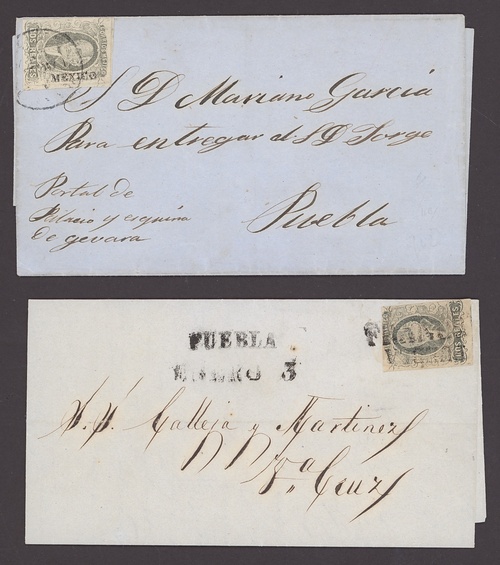 MEXICO
S D Mariano Garcia
Para entregar al S D Jorge
Portal de
Palacio y esquina
de gevara
Puebla
PUEBLA
ENERO 3
S.S. Calleja y Martinez
Va Cruz